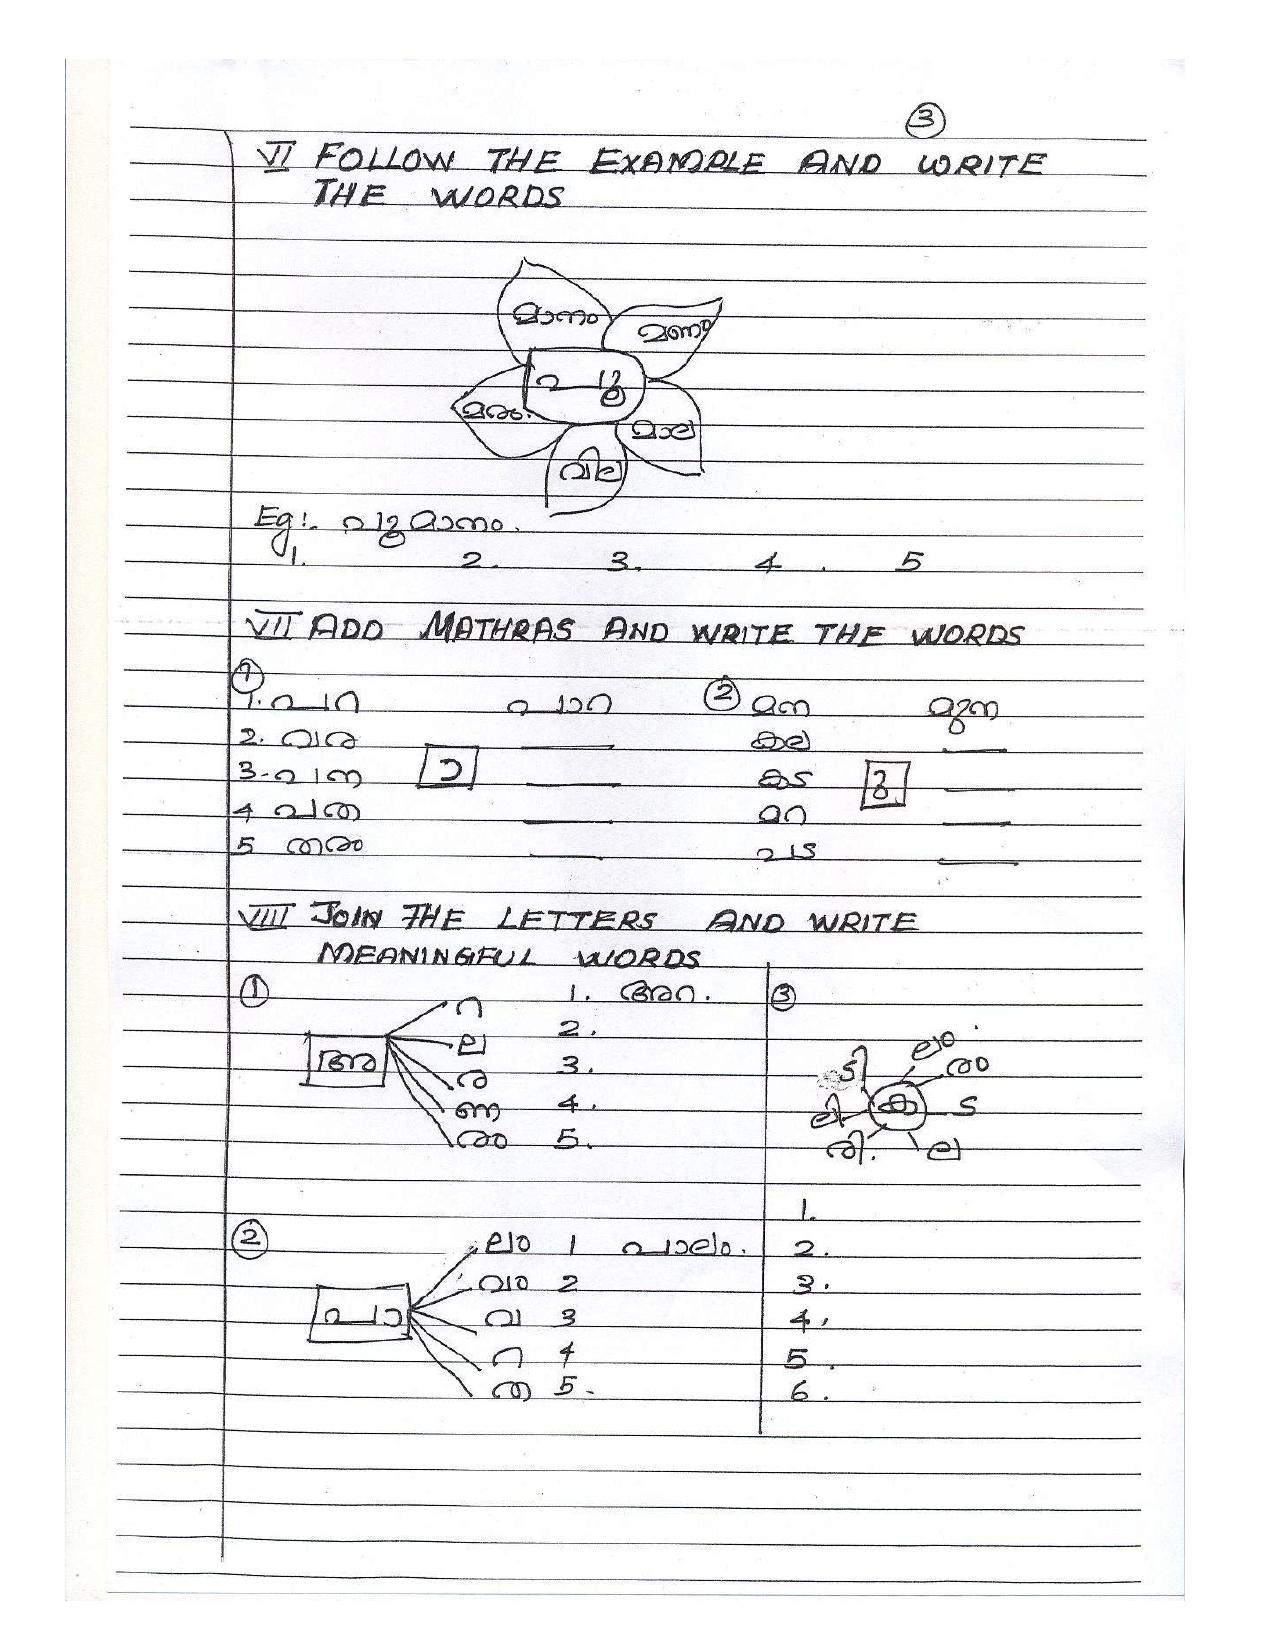 3
VI FOLLOW THE EXAMPLE AND WRITE
THE WORDS
മാനം
മണം
പൂ
മരം.
മാല
വില
Eg:. പൂമാനം.
1. 2. 3. 4. 5
VII ADD MATHRAS AND WRITE THE WORDS
1 2
1. പറ പാറ മന മുന
2. വര കല
3- പന ാ കട ു
4 പത മറ
5 തരം പട
VIII JOIN THE LETTERS AND WRITE
MEANINGFUL WORDS
1
അ
റ 1. അറ.
ല 2.
ര 3.
ണ 4.
രം 5.
3
ടി ലം
രം
ലി ക ട
രി. ല
2
പാ
ലം 1 പാലം.
പം 2
വ 3
റ 4
ത 5.
1.
2.
3.
4.
5.
6.